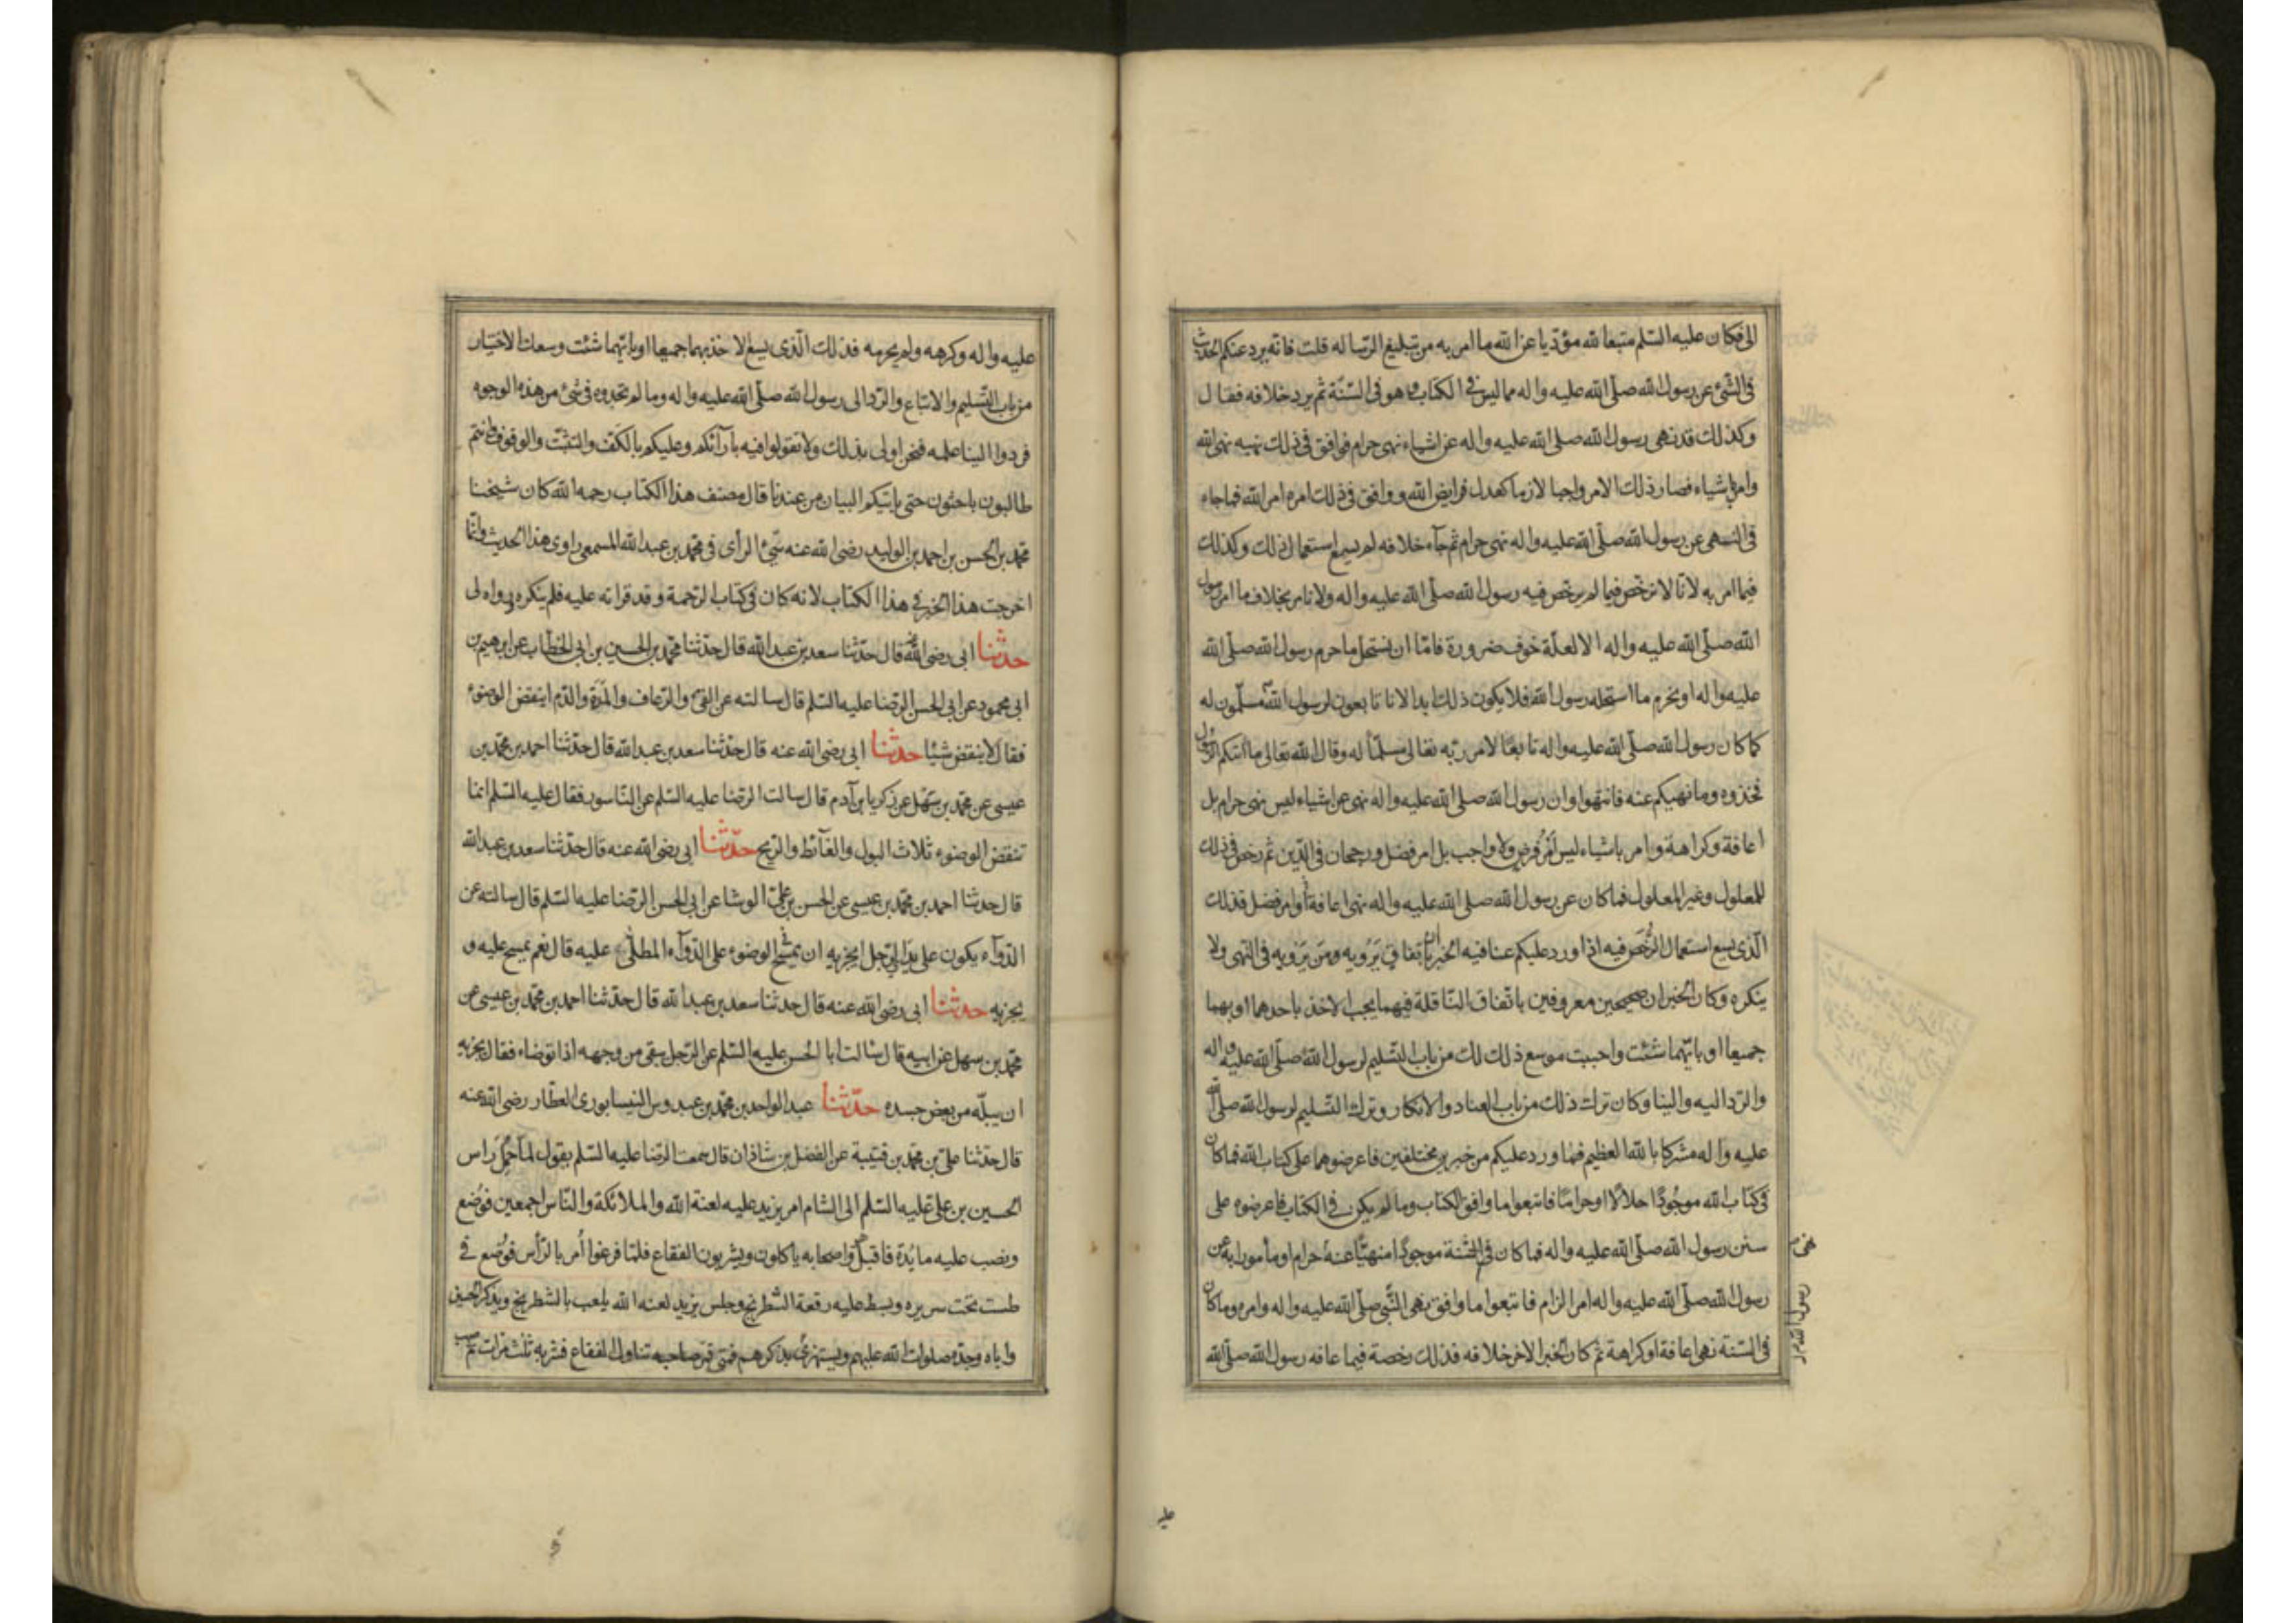 الى فكان عليه السّلم متبعا لله مؤدّيا عن الله ما امر به من تبليغ الرّساله قلت فانّه يرد عنكم الحديث
فى الشّئ عن رسول الله صلّى الله عليه واله مما ليس فى الكتاب وهو فى السّنّة ثم يرد خلافه فقال
وكذلك قد نهى رسول الله صلّى الله عليه واله عن اشياء نهى حرام فوافق فى ذلك نهيه نهى الله
وامر باشياء فصار ذلك الامر واجبا لازما كعدل فرايض الله ووافق فى ذلك امره امر الله فما جاء
فى النّهى عن رسول الله صلّى الله عليه واله نهى حرام ثم جآء خلافه لم يسع استعمال ذلك وكذلك
فيما امر به لانّا لا نرخّص فيما لم يرخّص فيه رسول الله صلّى الله عليه واله ولا نامر بخلاف ما امر رسول
الله صلّى الله عليه واله الا لعلّة خوف ضرورة فامّا ان نستحلّ ما حرم رسول الله صلّى الله
عليه واله او نحرم ما استحله رسول الله فلا يكون ذلك ابدا لانا تابعون لرسول الله مسلّمون له
كما كان رسول الله صلّى الله عليه واله تابعًا لامر ربّه تعالى مسلّمًا له وقال الله تعالى ما اتيكم الرّسول
فخذوه وما نهيكم عنه فانتهوا وان رسول الله صلى الله عليه واله نهى عن اشياء ليس نهى حرام بل
اعافة وكراهة وامر باشياء ليس امر فرض ولا واجب بل امر فضل ورجحان فى الدّين ثم رخص فى ذلك
للمعلول وغير المعلول فما كان عن رسول الله صلى الله عليه واله نهى اعافة او امر فضل فذلك
الّذى يسع استعمال الرّخص فيه اذا ورد عليكم عنا فيه الخبران باتفاق يَرْويه ومن يَرْويه فى النّهى ولا
ينكره وكان الخبران صحيحين معروفين باتّفاق النّاقلة فيهما يجب الاخذ باحدهما او بهما
جميعا او بايّهما شئت واحببت موسع ذلك لك من باب التّسليم لرسول الله صلّى الله عليه واله
والرّد اليه والينا وكان ترك ذلك من باب العناد والانكار وترك التّسليم لرسول الله صلّى الله
عليه واله مشركا بالله العظيم فما ورد عليكم من خبرين مختلفين فاعرضوهما على كتاب الله فما كان
فى كتاب الله موجُودًا حلالًا او حرامًا فاتبعوا ما وافق الكتاب وما لم يكن فى الكتاب فاعرضوه على
سنن رسول الله صلّى الله عليه واله فما كان فى السّنة موجودًا منهيًّا عنهُ حرام او مأمورا به عن
رسول الله صلّى الله عليه واله امر الزام فاتبعوا ما وافق نهى النّبى صلّى الله عليه واله وامره وما كان
فى السّنة نهى اعافة او كراهة ثم كان الخبر الاخر خلافه فذلك رخصة فيما عافه رسول الله صلّى الله
عليه
عليه واله وكرهه ولم يحرمه فذلك الّذى يسع الاخذ بهما جميعا او بايّهما شئت وسعك الاختيار
من باب التّسليم والاتباع والرّد الى رسول الله صلّى الله عليه واله وما لم تجدوه فى شئ من هذه الوجوه
فردوا الينا علمه فنحن اولى بذلك ولا تقولوا فيه بآرآئكم وعليكم بالكف والتثبّت والوقوف وانتم
طالبون باحثون حتى ياتيكم البيان من عندنا قال مصنف هذا الكتاب رحمه الله كان شيخنا
محمّد بن الحسن بن احمد بن الوليد رضى الله عنه سيّئ الرأى فى محمّد بن عبد الله المسمعى راوى هذا الحديث وانّما
اخرجت هذا الخبر فى هذا الكتاب لانه كان فى كتاب الرّحمة وقد قراته عليه فلم ينكره ورواه لى
حدّثنا ابى رضى الله عنه قال حدّثنا سعد بن عبد الله قال حدّثنا محمّد بن الحسين بن ابى الخطّاب عن ابرهيم بن
ابى محمود عن ابى الحسن الرّضا عليه السّلم قال سالته عن القئ والرّعاف والمّرّة والدّم اينقض الوضوء
فقال لا ينقض شيئا حدّثنا ابى رضى الله عنه قال حدّثنا سعد بن عبد الله قال حدّثنا احمد بن محمّد بن
عيسى عن محمّد بن سَهْل عن زكريا بن آدم قال سالت الرّضا عليه السّلم عن النّاسور فقال عليه السّلم انما
تنقض الوضوء ثلاث البول والغآئط والرّيح حدّثنا ابى رضى الله عنه قال حدّثنا سعد بن عبد الله
قال حدثنا احمد بن محمّد بن عيسى عن الحسن بن علىّ الوشا عن ابى الحسن الرّضا عليه السّلم قال سالته عن
الدّوآء يكون على يدَىِ الرّجل ايجزيه ان يمسَح الوضوء على الدّوآء المطلّى عليه قال نعم يمسح عليه و
يجزيه حدّثنا ابى رضى الله عنه قال حدثنا سعد بن عبد الله قال حدّثنا احمد بن محمّد بن عيسى عن
محمّد بن سهل عن ابيه قال سالت ابا الحسن عليه السّلم عن الرّجل يبقى من وجهه اذا توضاء فقال يجزيه
ان يبلّه من بعض جسده حدّثنا عبد الواحد بن محمّد بن عبدوس النّيسابورى العطّار رضى الله عنه
قال حدّثنا علىّ بن محمّد بن قتيبة عن الفضل بن شاذان قال سمعت الرّضا عليه السّلم يقول لمّا حُمِلَ رَاس
الحسين بن علىّ عليه السّلم الى الشام امر يزيد عليه لعنة الله والملائكة والنّاس اجمعين فوُضع
ونصب عليه مائدة فاقبل واصحابه ياكلون ويشربون الفقاع فلمّا فرغوا أُمر بالرّأس فوُضع فى
طست تحت سريره وبسط عليه رقعة الشّطرنج وجلس يزيد لعنه الله يلعب بالشّطرنج ويذكر الحسين
واباه وجدّه صلوات الله عليهم ويستهزئ بذكرهم فمتى قمر صاحبه تناول الفقاع فشربه ثلث مرّات ثم صب